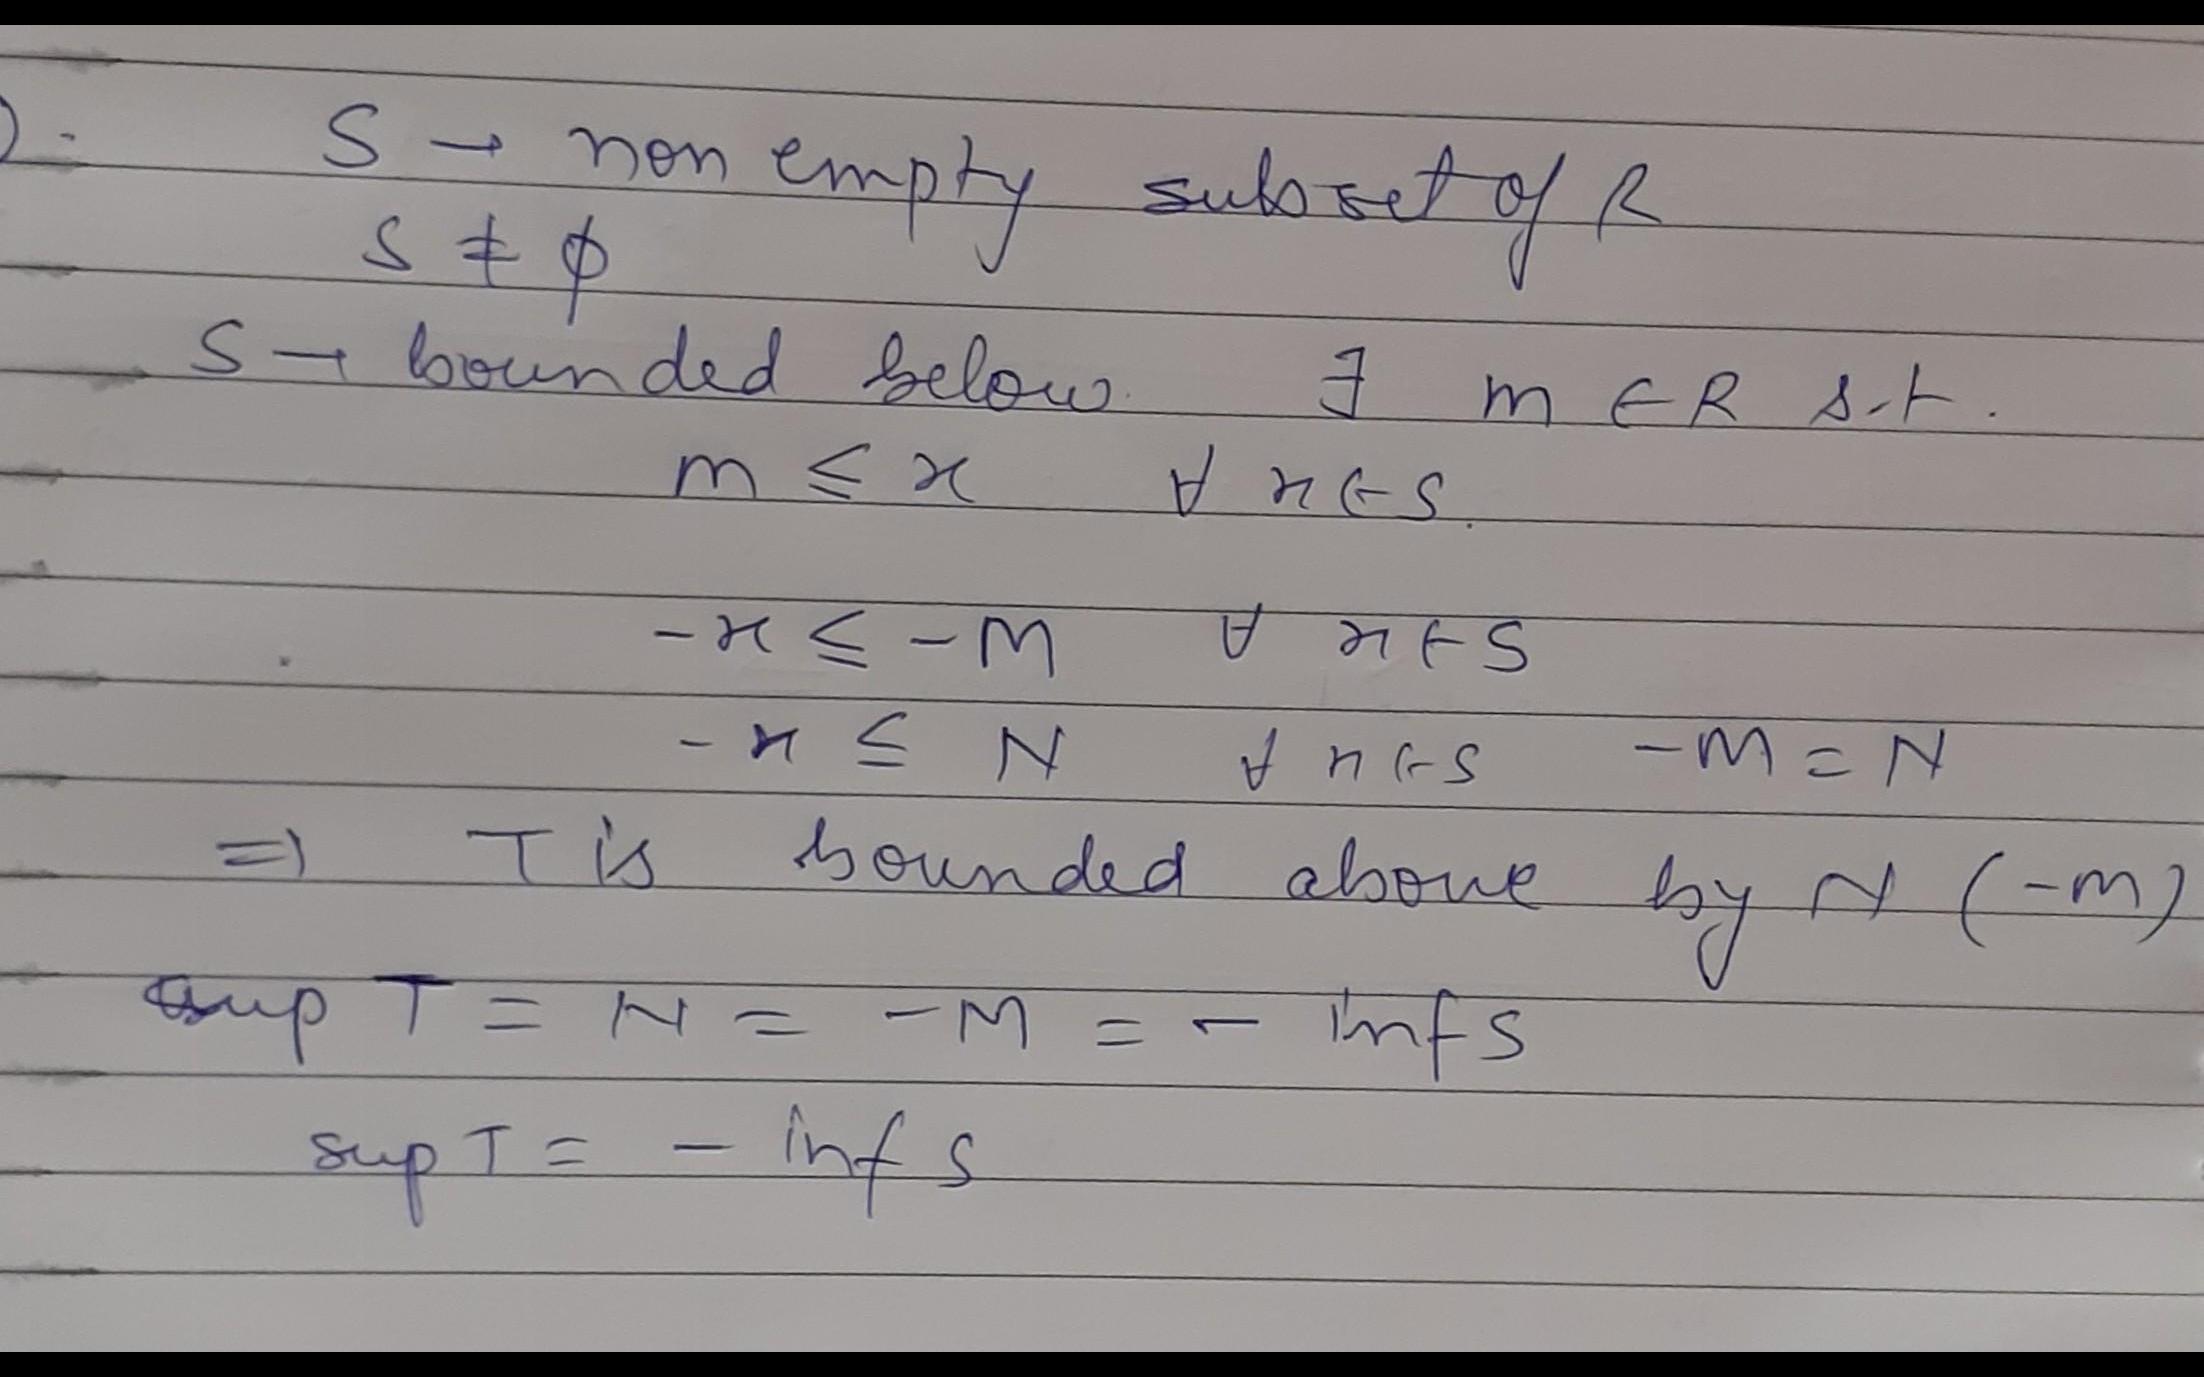 ). S → non empty subset of R
S ≠ ϕ
S → bounded below. ∃ m ∈ R s.t.
m ≤ x ∀ x ∈ S.
-x ≤ -M ∀ x ∈ S
-x ≤ N ∀ x ∈ S -M = N
⇒ T is bounded above by N (-m)
sup T = N = -M = - inf S
sup T = - inf S